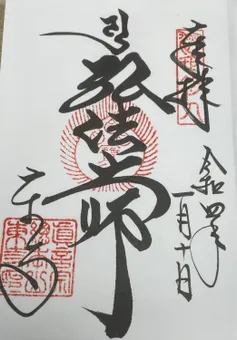 奉拝
令和四年
一月十日
弘法大師
東寺